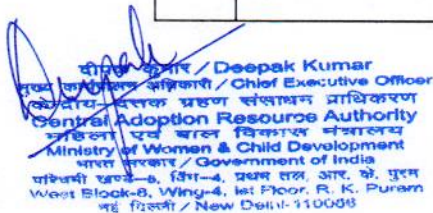 Deepak
दीपक कुमार / Deepak Kumar
मुख्य कार्यपालन अधिकारी / Chief Executive Officer
केन्द्रीय दत्तक ग्रहण संसाधन प्राधिकरण
Central Adoption Resource Authority
महिला एवं बाल विकास मंत्रालय
Ministry of Women & Child Development
भारत सरकार / Government of India
पश्चिमी खण्ड-8, विंग-4, प्रथम तल, आर. के. पुरम
West Block-8, Wing-4, Ist Floor, R. K. Puram
नई दिल्ली / New Delhi-110066